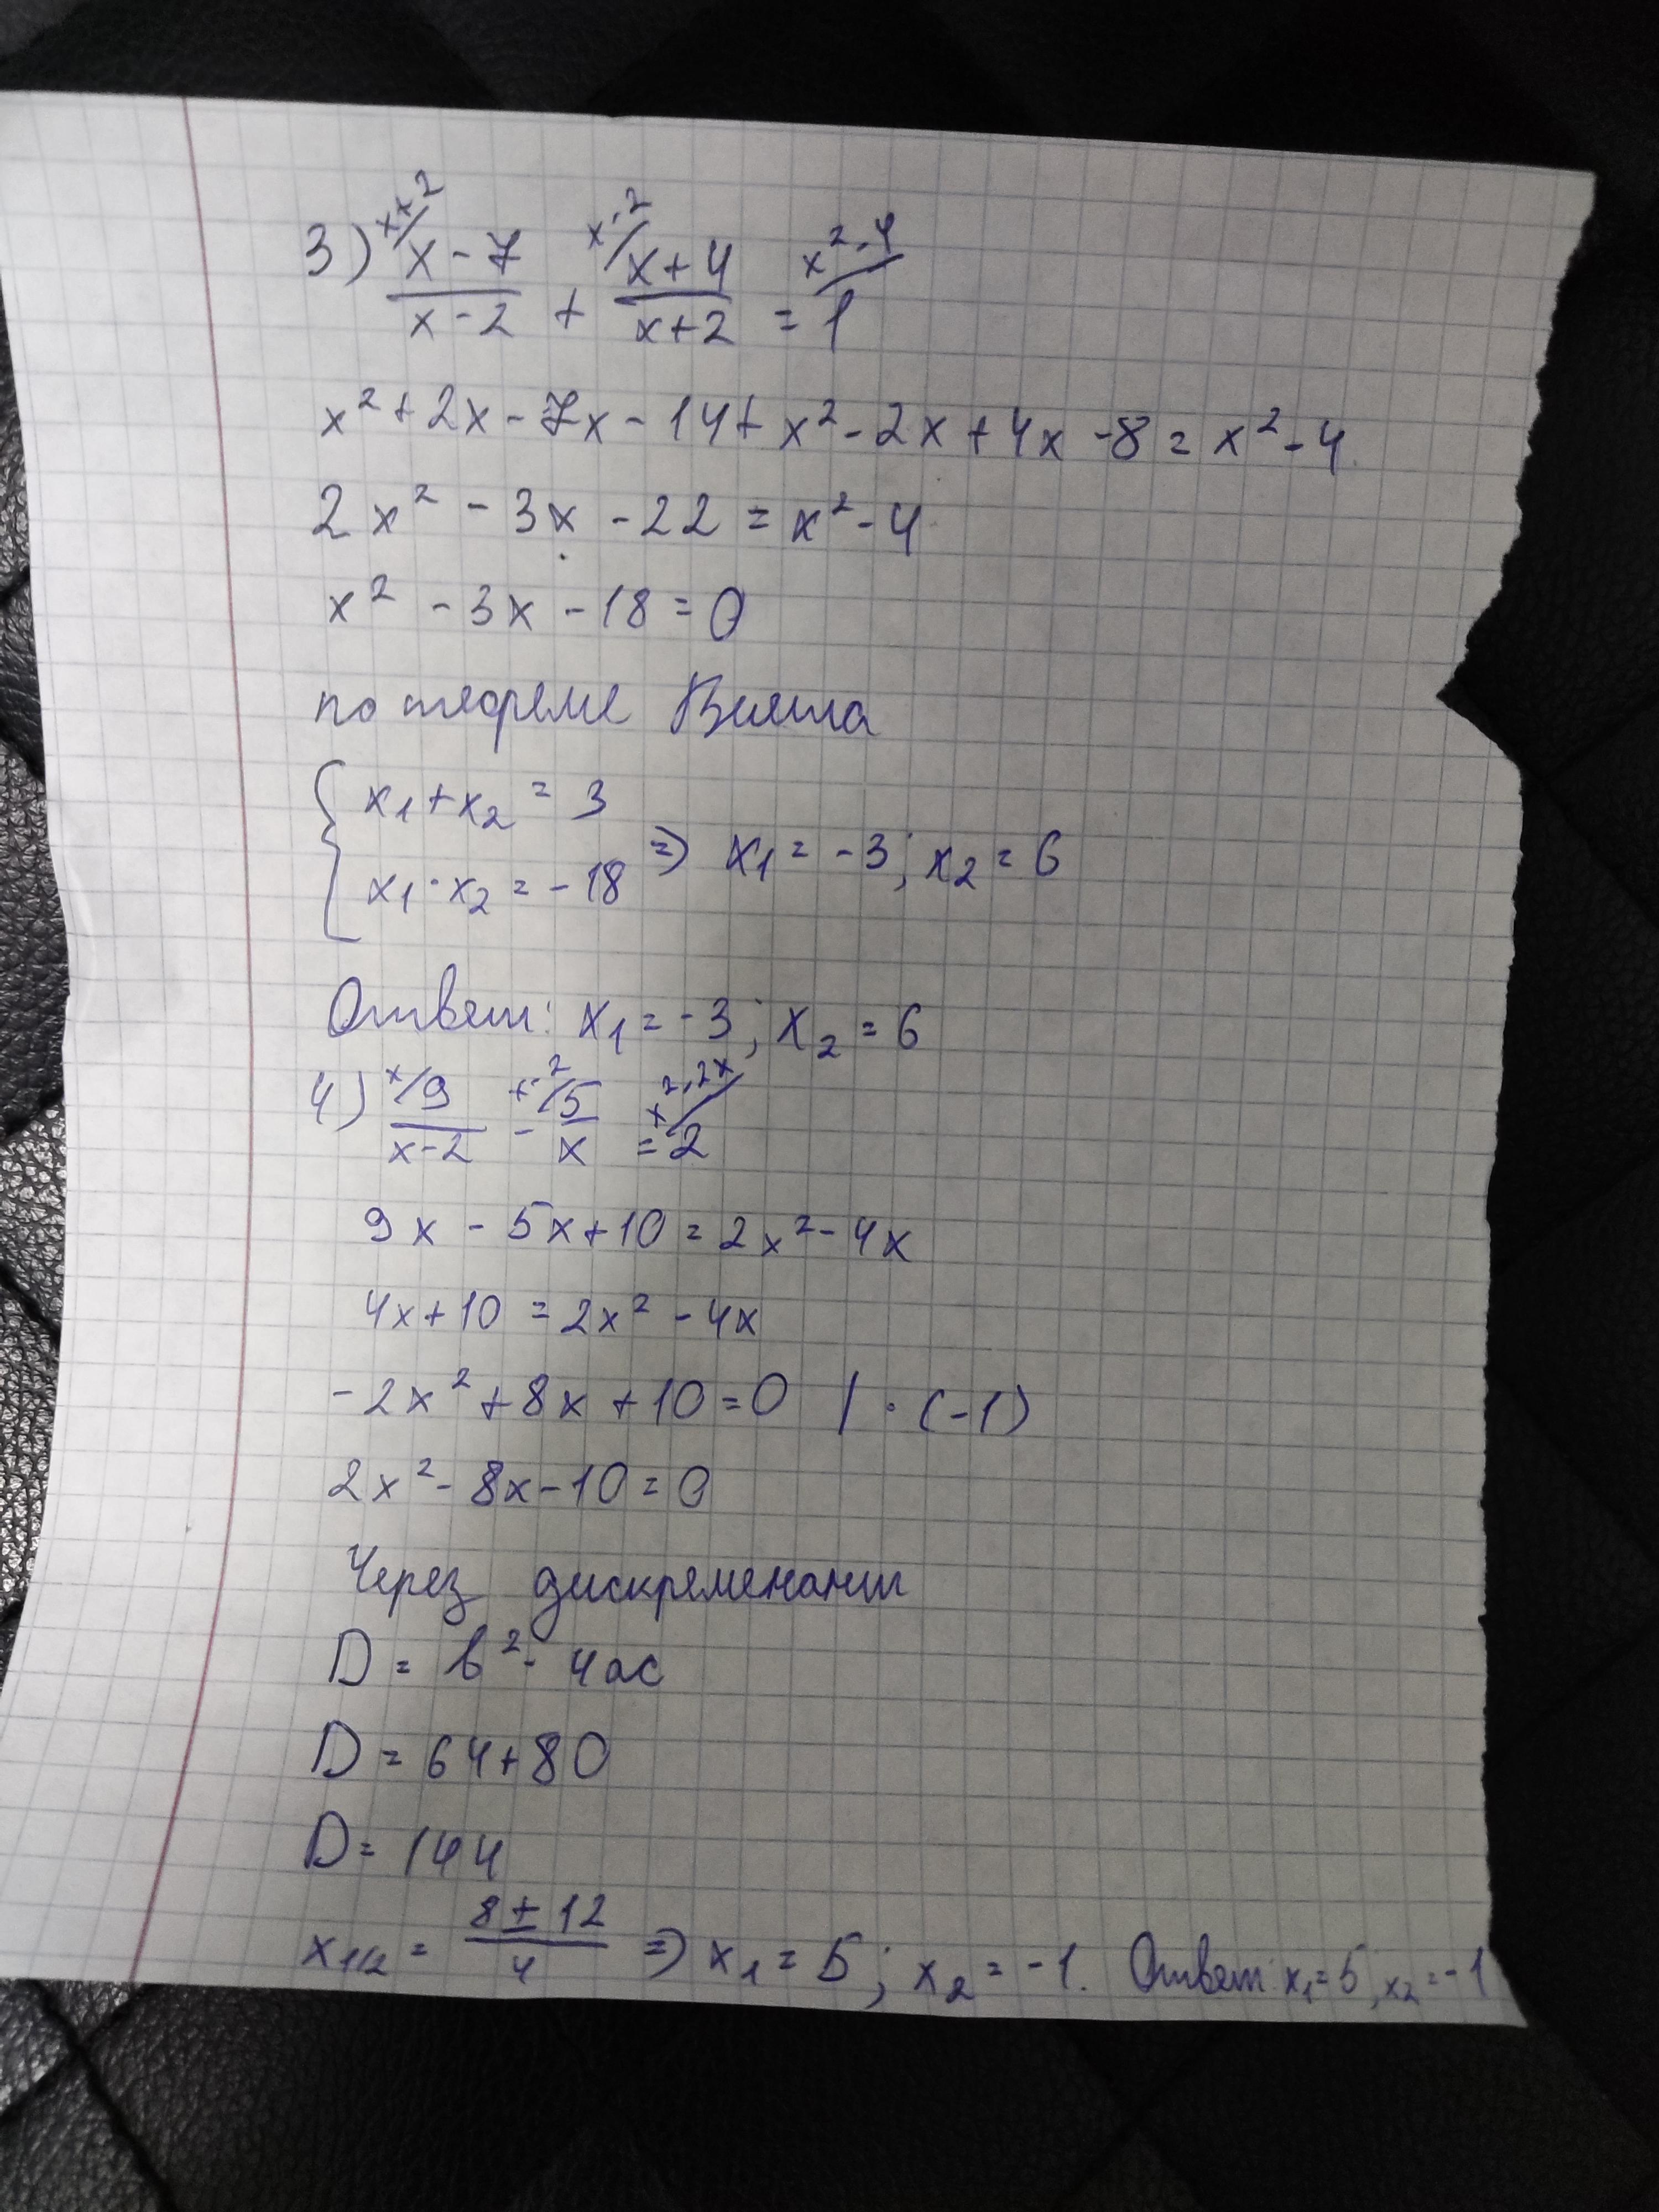 3) x+2/ x-7 / x-2 + x-2/ x+4 / x+2 = x²-4/ 1
x² + 2x - 7x - 14 + x² - 2x + 4x - 8 = x² - 4
2x² - 3x - 22 = x² - 4
x² - 3x - 18 = 0
по теореме Виета
{ x₁ + x₂ = 3
x₁ · x₂ = -18 => x₁ = -3; x₂ = 6
Ответ: x₁ = -3; x₂ = 6
4) x/ 9 / x-2 - x-2/ 5 / x = x²-2x/ 2
9x - 5x + 10 = 2x² - 4x
4x + 10 = 2x² - 4x
-2x² + 8x + 10 = 0 | · (-1)
2x² - 8x - 10 = 0
Через дискременант
D = b² - 4ac
D = 64 + 80
D = 144
x₁/₂ = 8 ± 12 / 4 => x₁ = 5; x₂ = -1. Ответ: x₁ = 5, x₂ = -1